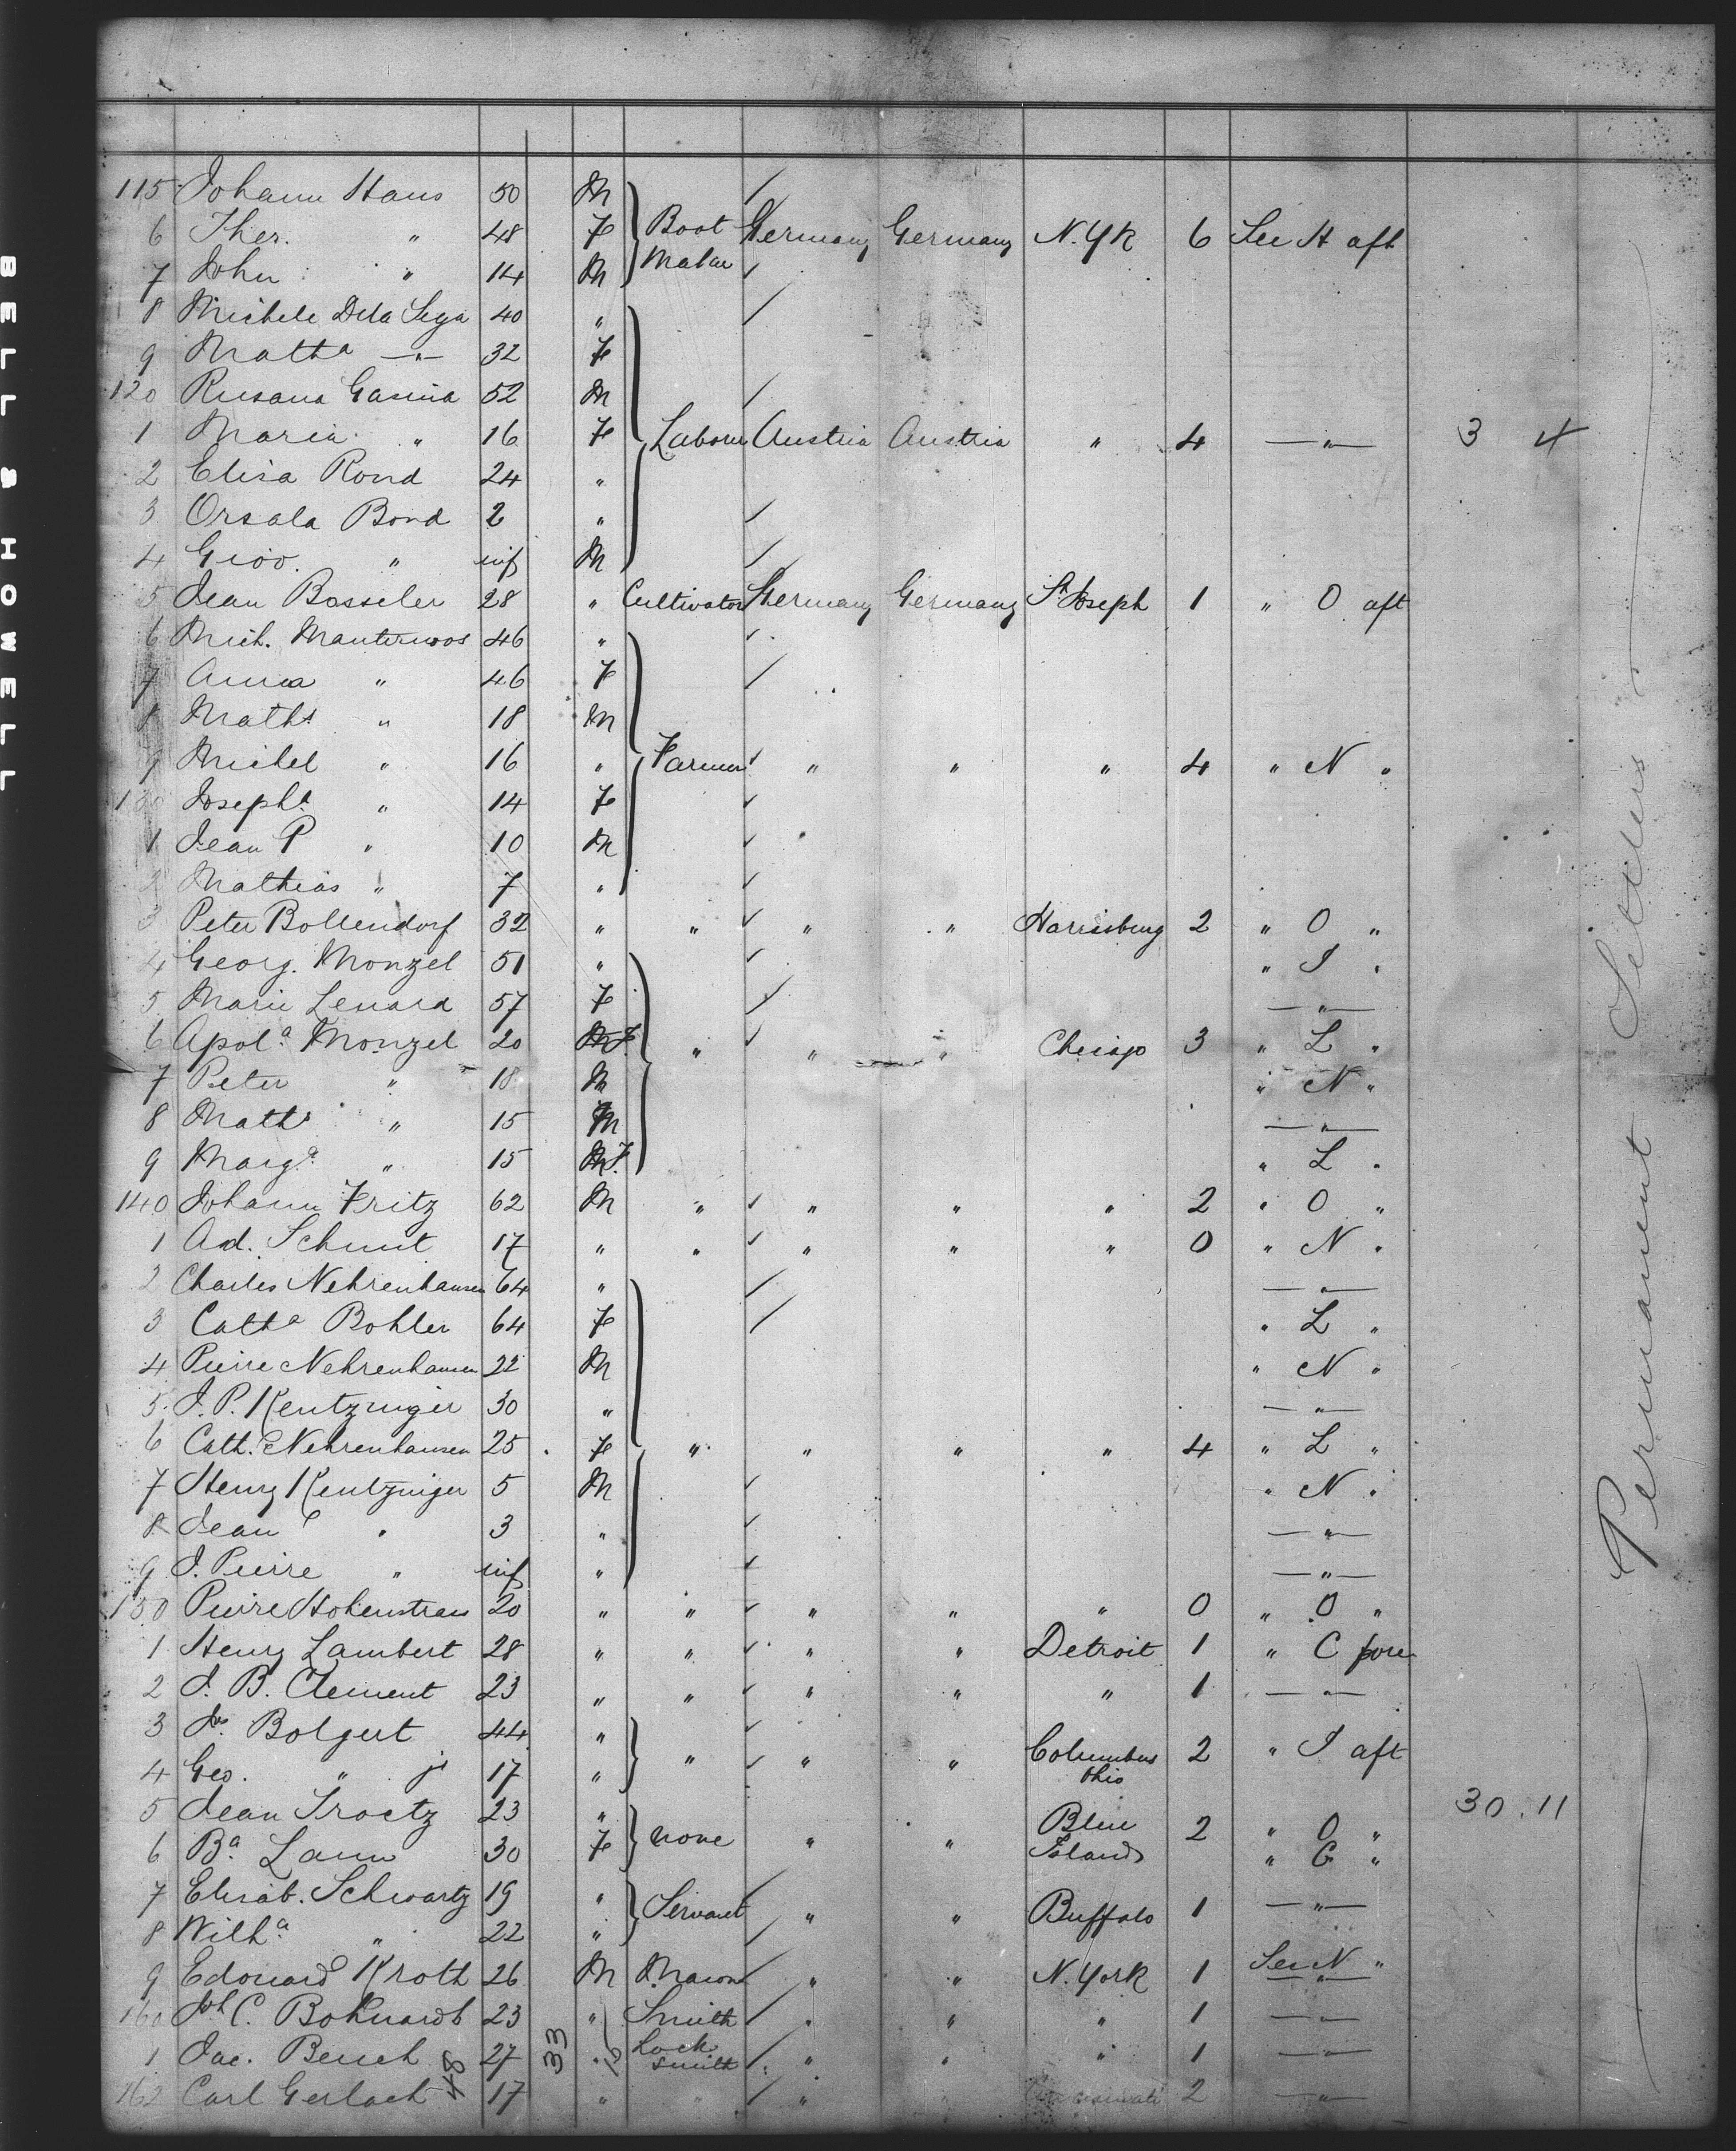 BELL & HOWELL
115 Johann Haus 50 M
6 Ther. " 48 F Boot Germany Germany N.YK 6 See H aft
7 John " 14 M Maker
8 Michele Dela Sega 40 "
9 Matha —"— 32 F
120 Rusana Gasina 52 M
1 Maria " 16 F Laborer Austria Austria " 4 —"— 3 4
2 Elisa Rond 24 "
3 Orsala Bond 2 "
4 Giov. " inf M
5 Jean Bosseler 28 " Cultivator Germany Germany St Joseph 1 " O aft
6 Mich. Manternoos 46 "
7 Anna " 46 F
8 Maths " 18 M
9 Michel " 16 " Farmer " " " 4 " N "
130 Josepha " 14 F
1 Jean P " 10 M
2 Mathias " 7 "
3 Peter Bollendorf 32 " " " " Harrisburg 2 " O "
4 Georg. Monzel 51 " " I "
5 Marie Lenard 57 F —"—
6 Apola Monzel 20 F. " " " Chicago 3 " L "
7 Peter " 18 M " N "
8 Maths " 15 M —"—
9 Marga " 15 F. " L "
140 Johann Fritz 62 M " " " " 2 " O "
1 Ad. Schmit 17 " " " " " 0 " N "
2 Charles Nehrenhausen 64 " —"—
3 Catha Bohler 64 F " L "
4 Pierre Nehrenhausen 22 M " N "
5 J. P. Kentzinger 30 " —"—
6 Cath. Nehrenhausen 25 F " " " " 4 " L "
7 Henry Kentzinger 5 M " N "
8 Jean " 3 " —"—
9 J. Pierre " inf " —"—
150 Pierre Hohenstraus 20 " " " " " 0 " O "
1 Henry Lambert 28 " " " " Detroit 1 " C fore
2 J. B. Clement 23 " " " " " 1 —"—
3 Js. Bolgert 44 "
4 Geo. " jr 17 " " " " Columbus Ohio 2 " I aft
5 Jean Troetz 23 " 30.11
6 Ba Lann 30 F none " " Blue Islands 2 " O " " C "
7 Elisab. Schwartz 19 "
8 Wilha " 22 " Servant " " Buffalo 1 —"—
9 Edouard Kroth 26 M Mason " " N.York 1 See N "
160 Joh C. Bohnardt 23 " Smith " " " 1 —"—
1 Jac. Bersch 27 " Lock smith " " " 1 —"—
162 Carl Gerlach 17 " " " " 2 —"—
48 33
Permanent Settlers